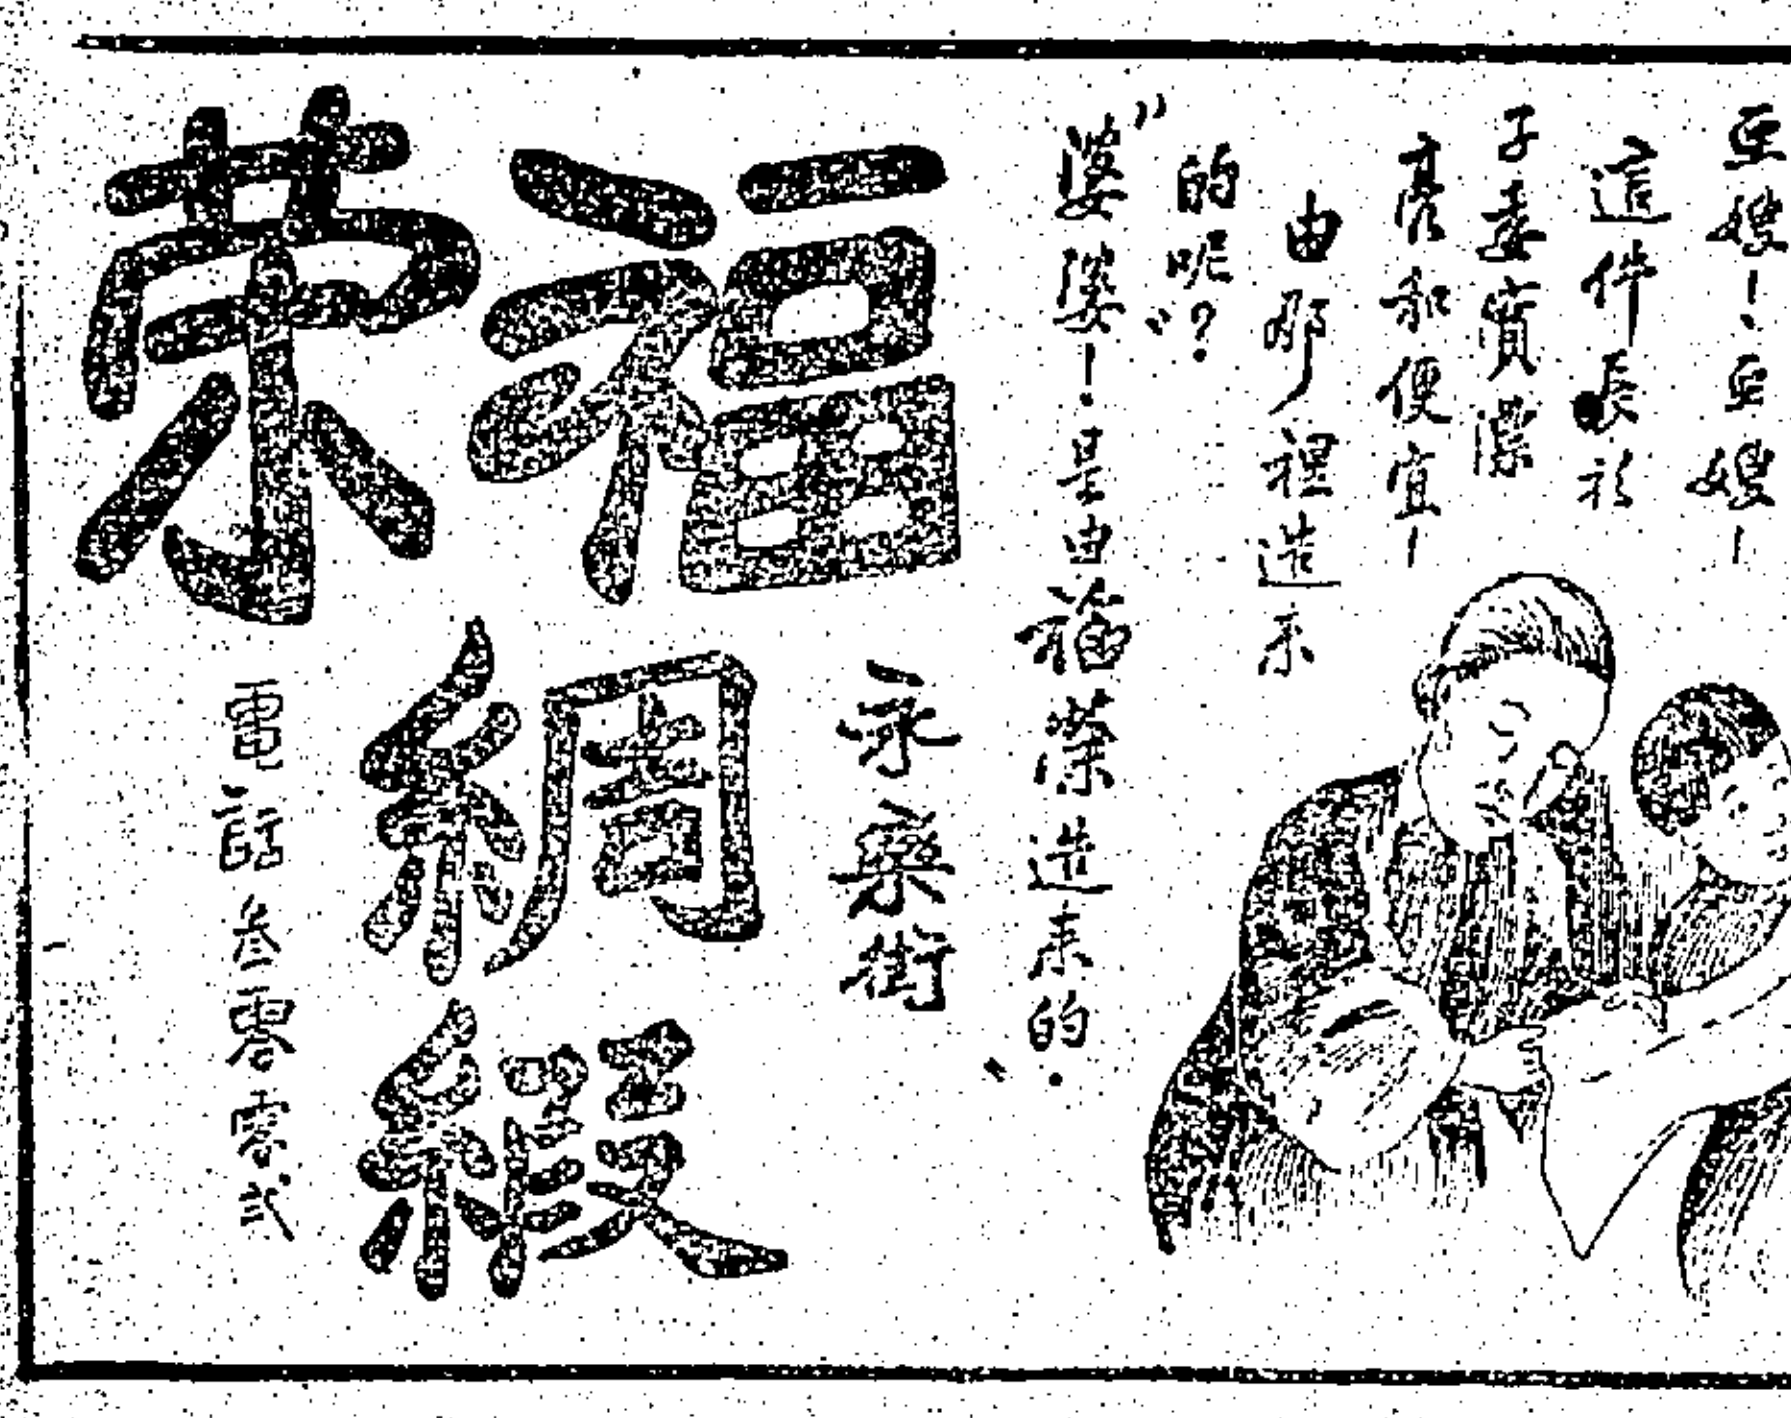 亞嫂！亞嫂！
這件長衫
子委實漂
亮和便宜！
由那裡造來
的呢？”
“婆婆！是由福榮造来的.”
永樂街
福荣
綢緞
電話叁零零弍